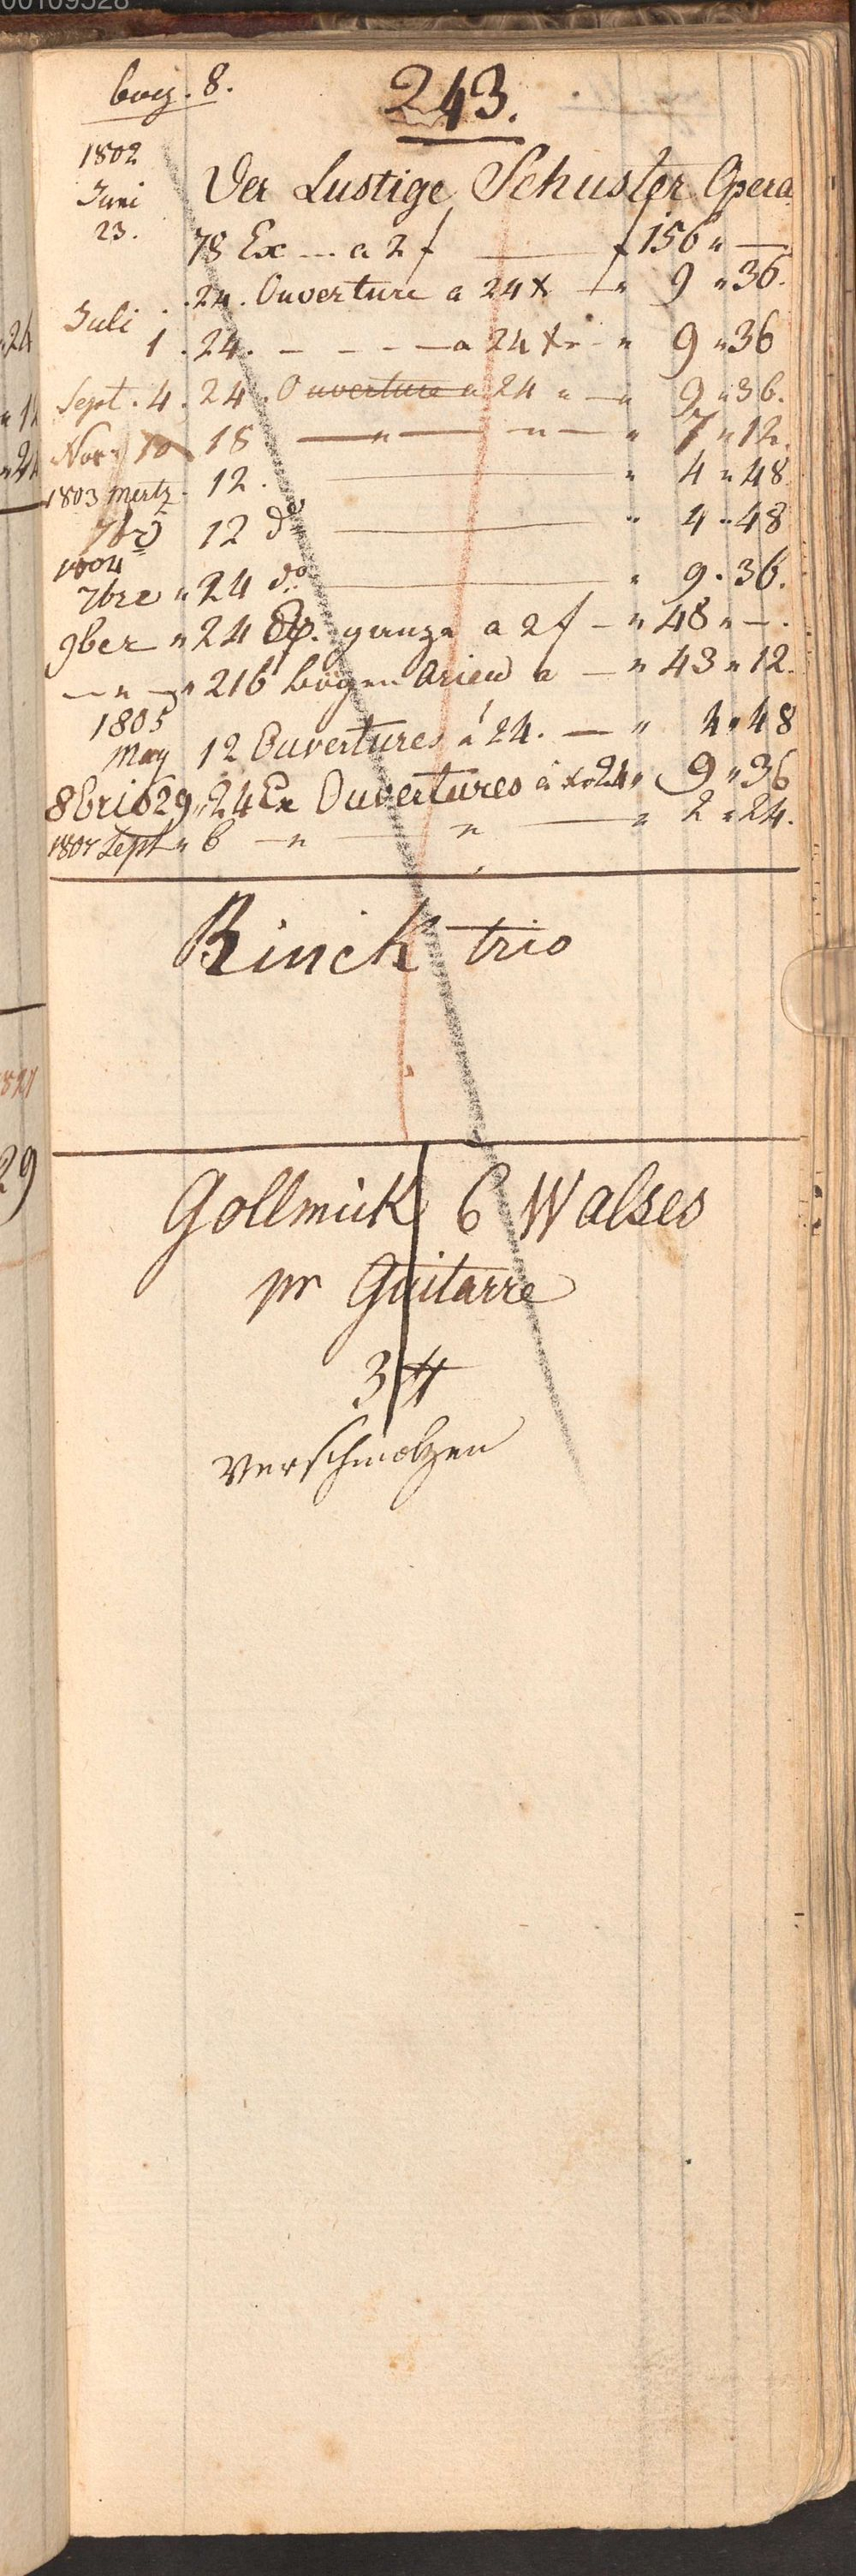 00109528
bog. 8.
243.
1802
Juni
23.
Der Lustige Schuster Opera
78 Ex --- a 2 f — f 156 " —
24. Ouverture a 24 x — " 9 " 36.
Juli
1. 24. - - - — a 24 x - " 9 " 36
Sept. 4. 24. Ouverture a 24 " — " 9 " 36.
Nov. 10 18 — " — " — " 7 " 12.
1803 Mertz. 12. — " 4 " 48
7br 12 do — " 4 " 48
1804
7bre " 24 do — " 9 " 36.
9ber " 24 Exp. ganze a 2 f — " 48 " —.
— " — " 216 bogen Arien a — " 43 " 12.
1805
May 12 Ouvertures á 24. — " 4 " 48
8bris 29 " 24 Ex Ouvertures á xr 24 " 9 " 36
1807 Sept " 6 — " — " — " 2 " 24.
Rinck trio
Gollmick 6 Walses
pr Guitarre
3 #
verschmolzen